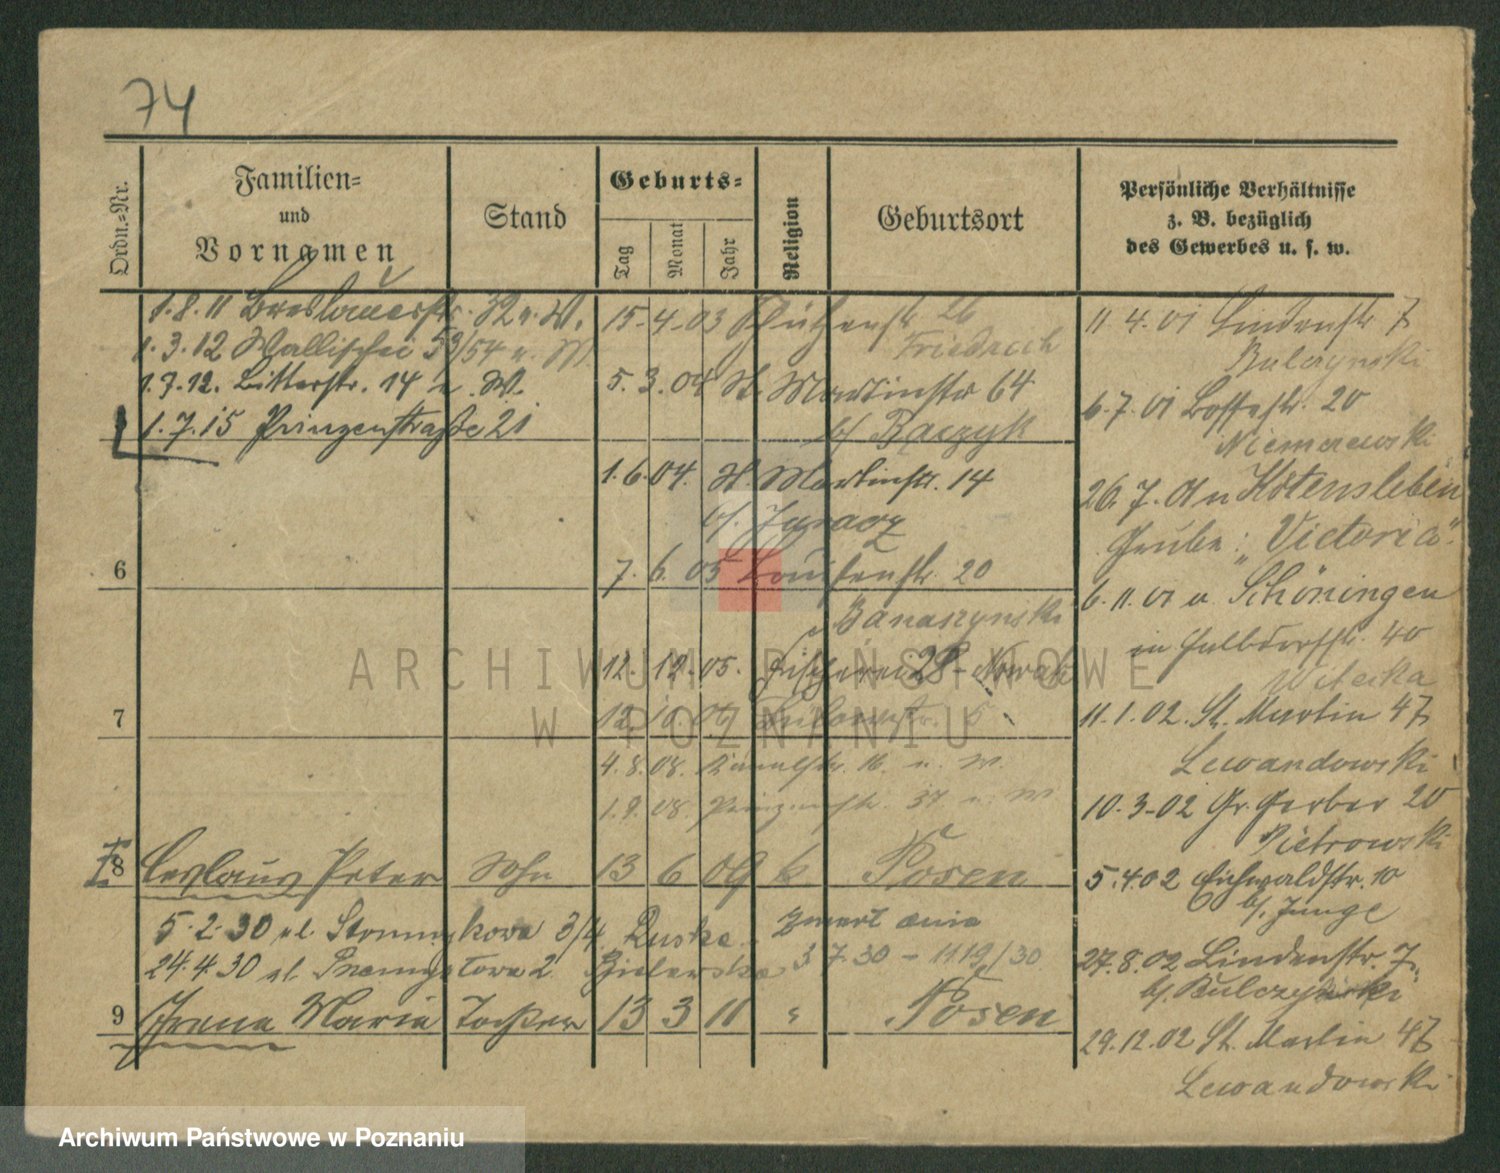 74
Ordn.-Nr.
Familien-
und
Vornamen
Stand
Geburts-
Tag
Monat
Jahr
Religion
Geburtsort
Persönliche Verhältnisse
z. B. bezüglich
des Gewerbes u. s. w.
1.8.11 Breslauerstr. 32 u. W.
1.3.12 Wallischei 53/54 u. W
1.7.12. Ritterstr. 14 u. W.
1.7.15 Prinzenstraße 21
15-4-03 Schützenstr. 26
Friedrich
5.3.04 St. Martinstr 64
b/ Raczyk
1.6.04. St. Martinstr. 14
b/.
6
7.6.05 Louisenstr. 20
Banaszynski
12.12.05. Fischerei 28 - Nowak
7
12.10.06
4.8.08. Kanalstr. 16. u. W.
1.9.08. Prinzenstr. 37. u. W
8 Ceslaus Peter Sohn 13 6 09 k Posen
5.2.30 ul. 3/4 Ruska
24.4.30 ul. 2
3 7.30 - 11.19/30
9 Irena Maria Tochter 13 3 11 " Posen
11.4.01 Lindenstr 7
Bulczynski
6.7.01 20
Niemerewski
26.7.01 n Hötensleben
Grube: "Victoria".
6.11.01 n Schöningen
in 40
Witecka
11.1.02. St. Martin 47
Lewandowski
10.3-02 Gr. Gerber 20
Pietrowski
5.4.02 Eichwaldstr. 10
b/. Junge
27.8.02 Lindenstr. 7
b/. Bulczynski
29.12.02 St. Martin 47
Lewandowski
ARCHIWUM PAŃSTWOWE
W POZNANIU
Archiwum Państwowe w Poznaniu